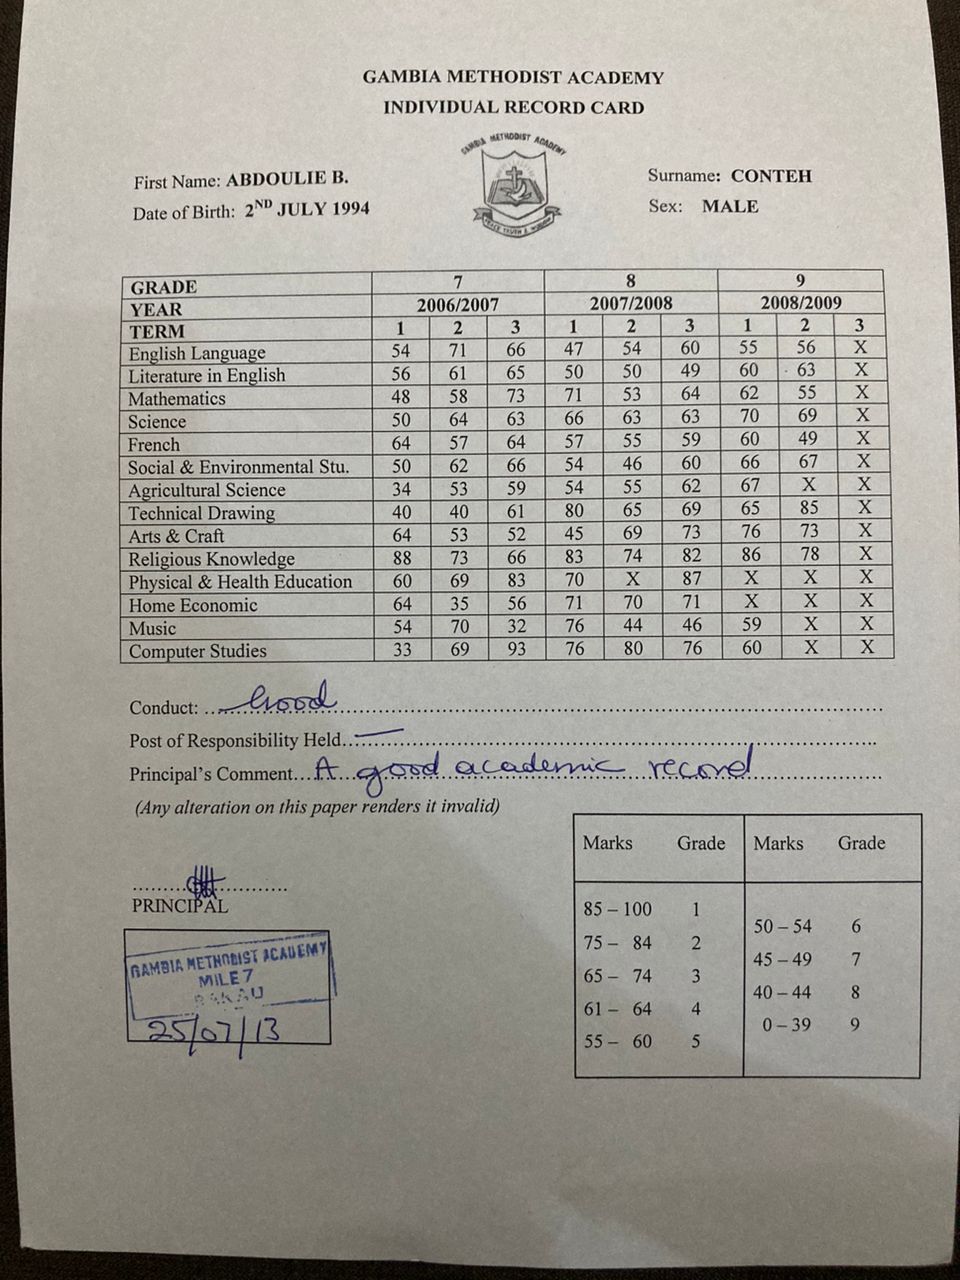 GAMBIA METHODIST ACADEMY
INDIVIDUAL RECORD CARD
GAMBIA METHODIST ACADEMY
First Name: ABDOULIE B.
Surname: CONTEH
Date of Birth: 2ND JULY 1994
Sex: MALE
GRADE 7 8 9
YEAR 2006/2007 2007/2008 2008/2009
TERM 1 2 3 1 2 3 1 2 3
English Language 54 71 66 47 54 60 55 56 X
Literature in English 56 61 65 50 50 49 60 63 X
Mathematics 48 58 73 71 53 64 62 55 X
Science 50 64 63 66 63 63 70 69 X
French 64 57 64 57 55 59 60 49 X
Social & Environmental Stu. 50 62 66 54 46 60 66 67 X
Agricultural Science 34 53 59 54 55 62 67 X X
Technical Drawing 40 40 61 80 65 69 65 85 X
Arts & Craft 64 53 52 45 69 73 76 73 X
Religious Knowledge 88 73 66 83 74 82 86 78 X
Physical & Health Education 60 69 83 70 X 87 X X X
Home Economic 64 35 56 71 70 71 X X X
Music 54 70 32 76 44 46 59 X X
Computer Studies 33 69 93 76 80 76 60 X X
Conduct: Good
Post of Responsibility Held
Principal's Comment A good academic record
(Any alteration on this paper renders it invalid)
Marks Grade Marks Grade
85 – 100 1
75 – 84 2
65 – 74 3
61 – 64 4
55 – 60 5
50 – 54 6
45 – 49 7
40 – 44 8
0 – 39 9
PRINCIPAL
GAMBIA METHODIST ACADEMY
MILE 7
BAKAU
25/07/13